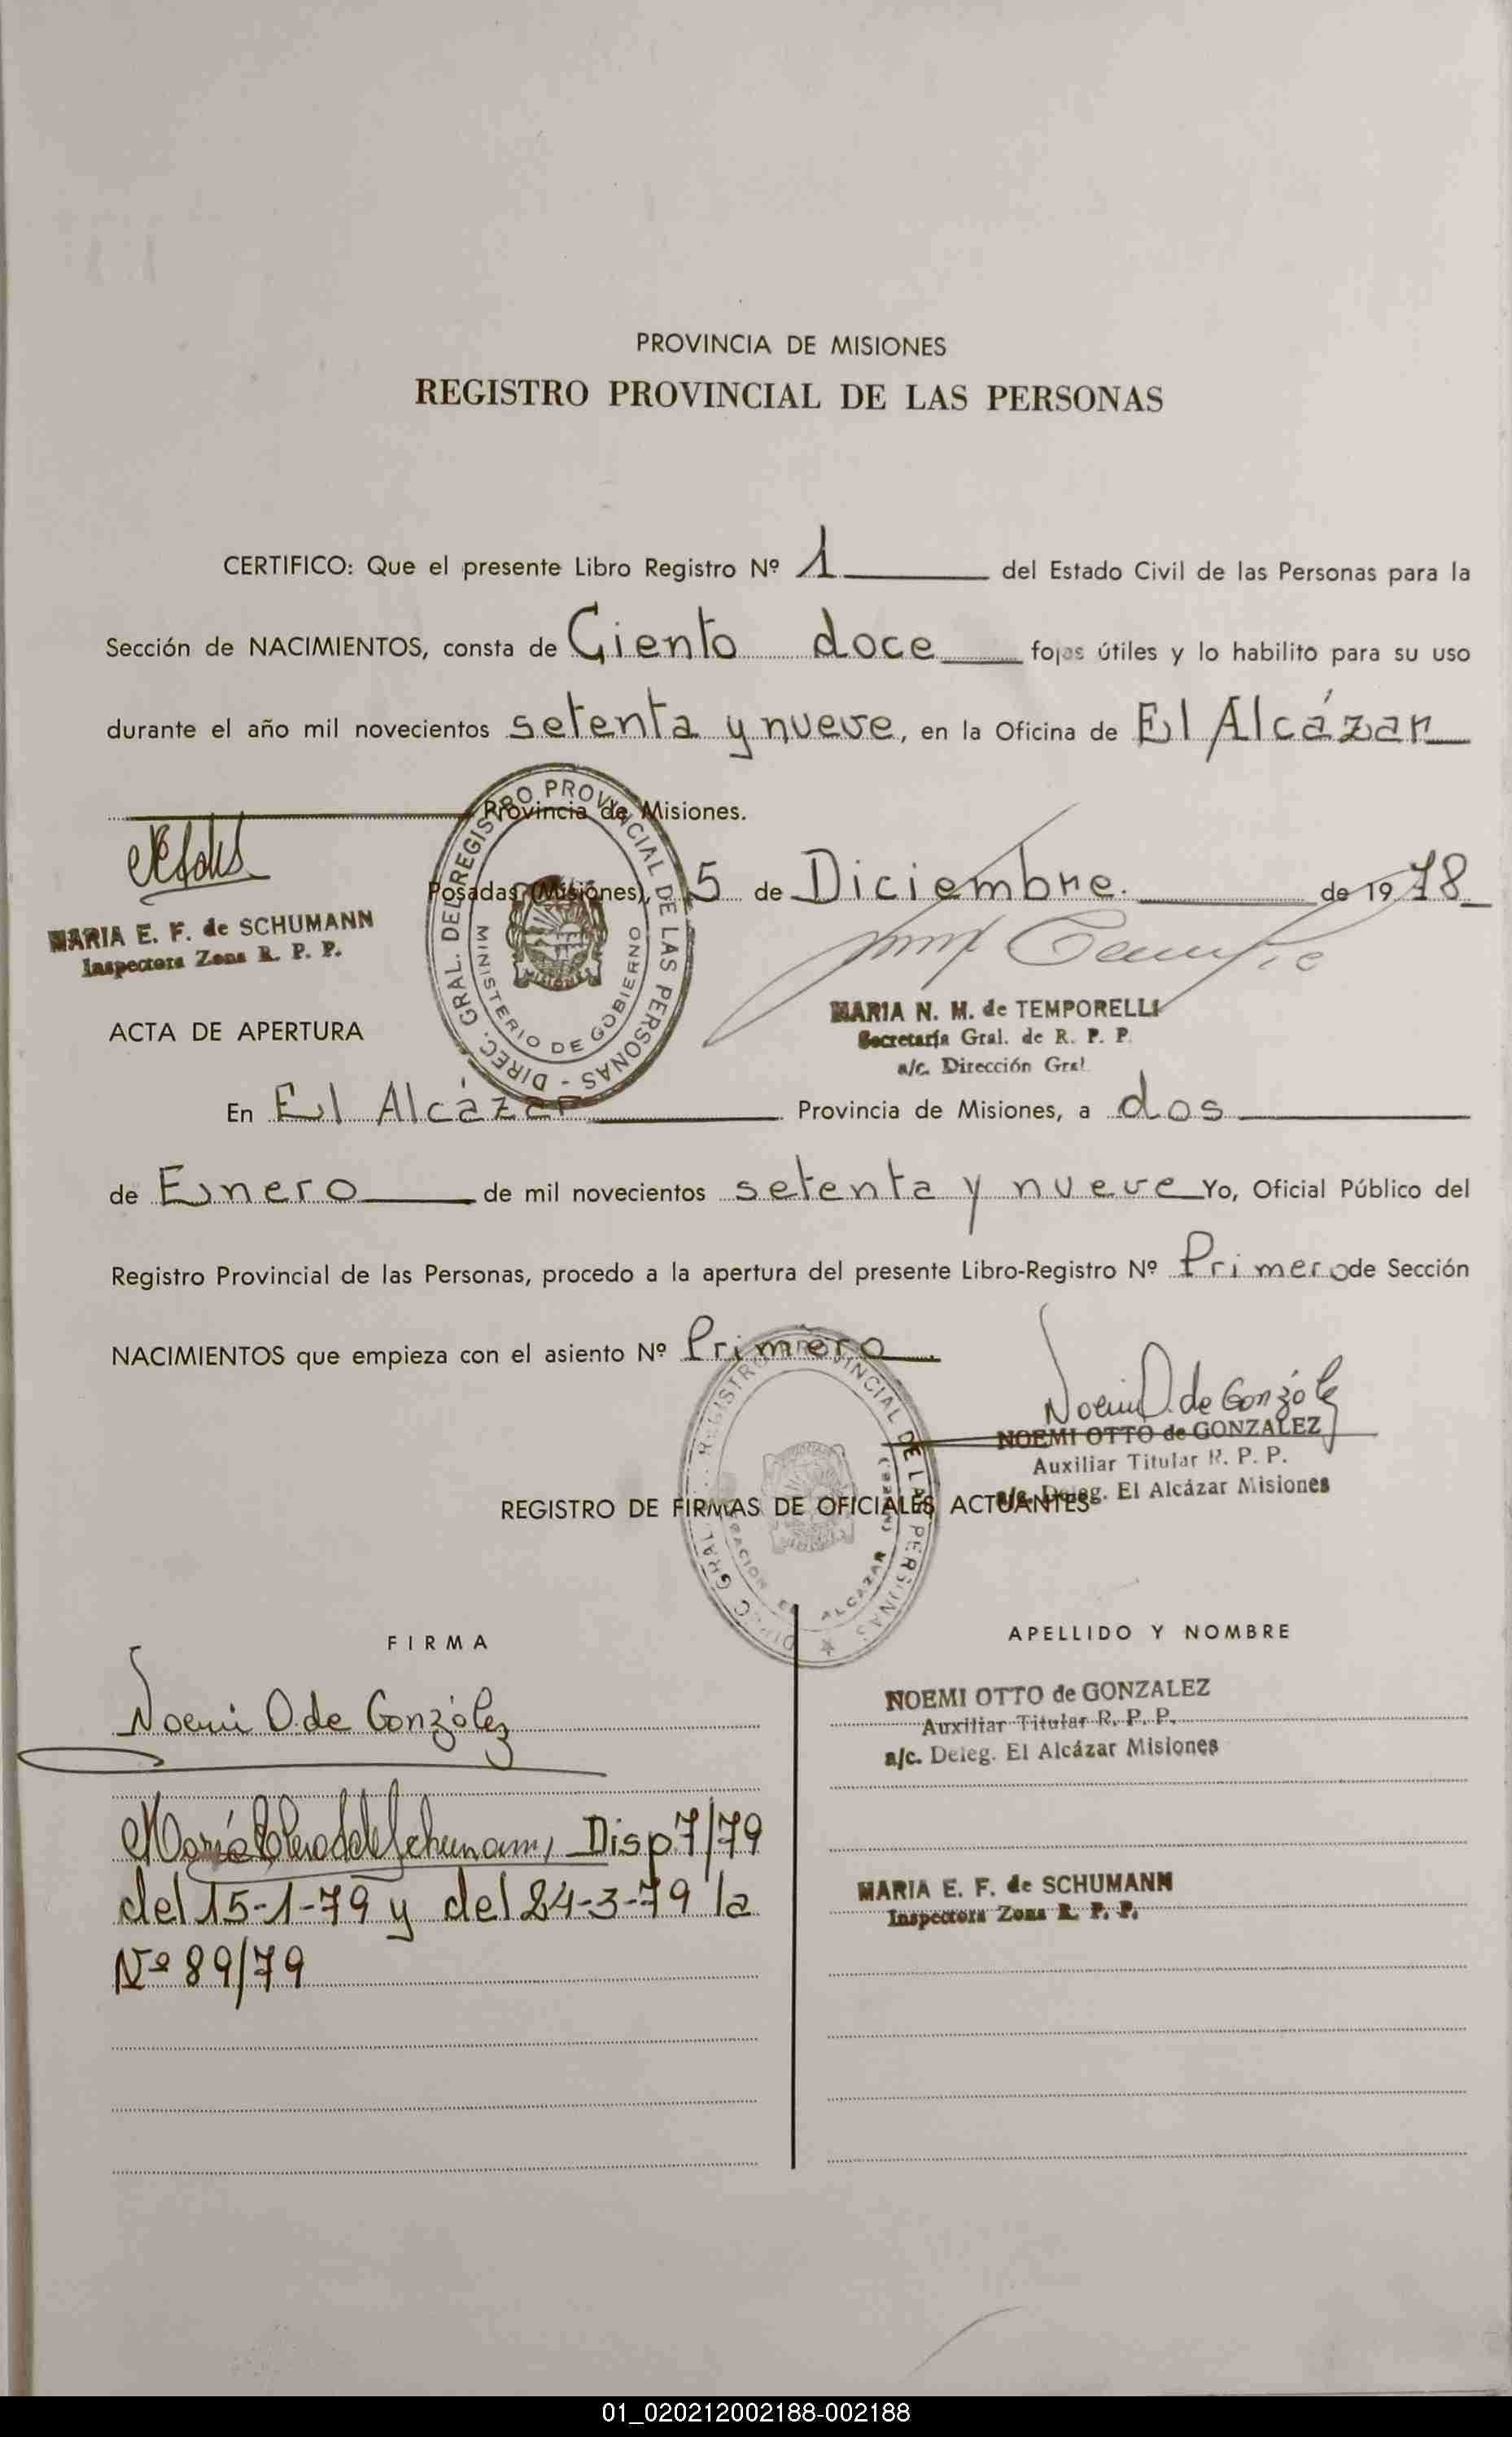 PROVINCIA DE MISIONES
REGISTRO PROVINCIAL DE LAS PERSONAS
CERTIFICO: Que el presente Libro Registro Nº 1 del Estado Civil de las Personas para la
Sección de NACIMIENTOS, consta de Ciento doce fojas útiles y lo habilito para su uso
durante el año mil novecientos setenta y nueve, en la Oficina de El Alcázar
Provincia de Misiones.
Posadas (Misiones), 15 de Diciembre. de 1978
MARIA E. F. de SCHUMANN
Inspectora Zona R. P. P.
DIREC. GRAL. DEL REGISTRO PROVINCIAL DE LAS PERSONAS -
MINISTERIO DE GOBIERNO
MARIA N. M. de TEMPORELLI
Secretaría Gral. de R. P. P.
a/c. Dirección Gral.
ACTA DE APERTURA
En El Alcázar Provincia de Misiones, a dos
de Enero de mil novecientos setenta y nueve Yo, Oficial Público del
Registro Provincial de las Personas, procedo a la apertura del presente Libro-Registro Nº Primero de Sección
NACIMIENTOS que empieza con el asiento Nº Primero.
Noemi O. de González
NOEMI OTTO de GONZALEZ
Auxiliar Titular R. P. P.
a/c. Deleg. El Alcázar Misiones
DIREC GRAL REGISTRO PROVINCIAL DE LAS PERSONAS
EL ALCAZAR
REGISTRO DE FIRMAS DE OFICIALES ACTUANTES
FIRMA
APELLIDO Y NOMBRE
Noemi O. de González
NOEMI OTTO de GONZALEZ
Auxiliar Titular R. P. P.
a/c. Deleg. El Alcázar Misiones
María de Schumann, Disp 7/79
del 15-1-79 y del 24-3-79 la
Nº 89/79
MARIA E. F. de SCHUMANN
Inspectora Zona R. P. P.
01_020212002188-002188